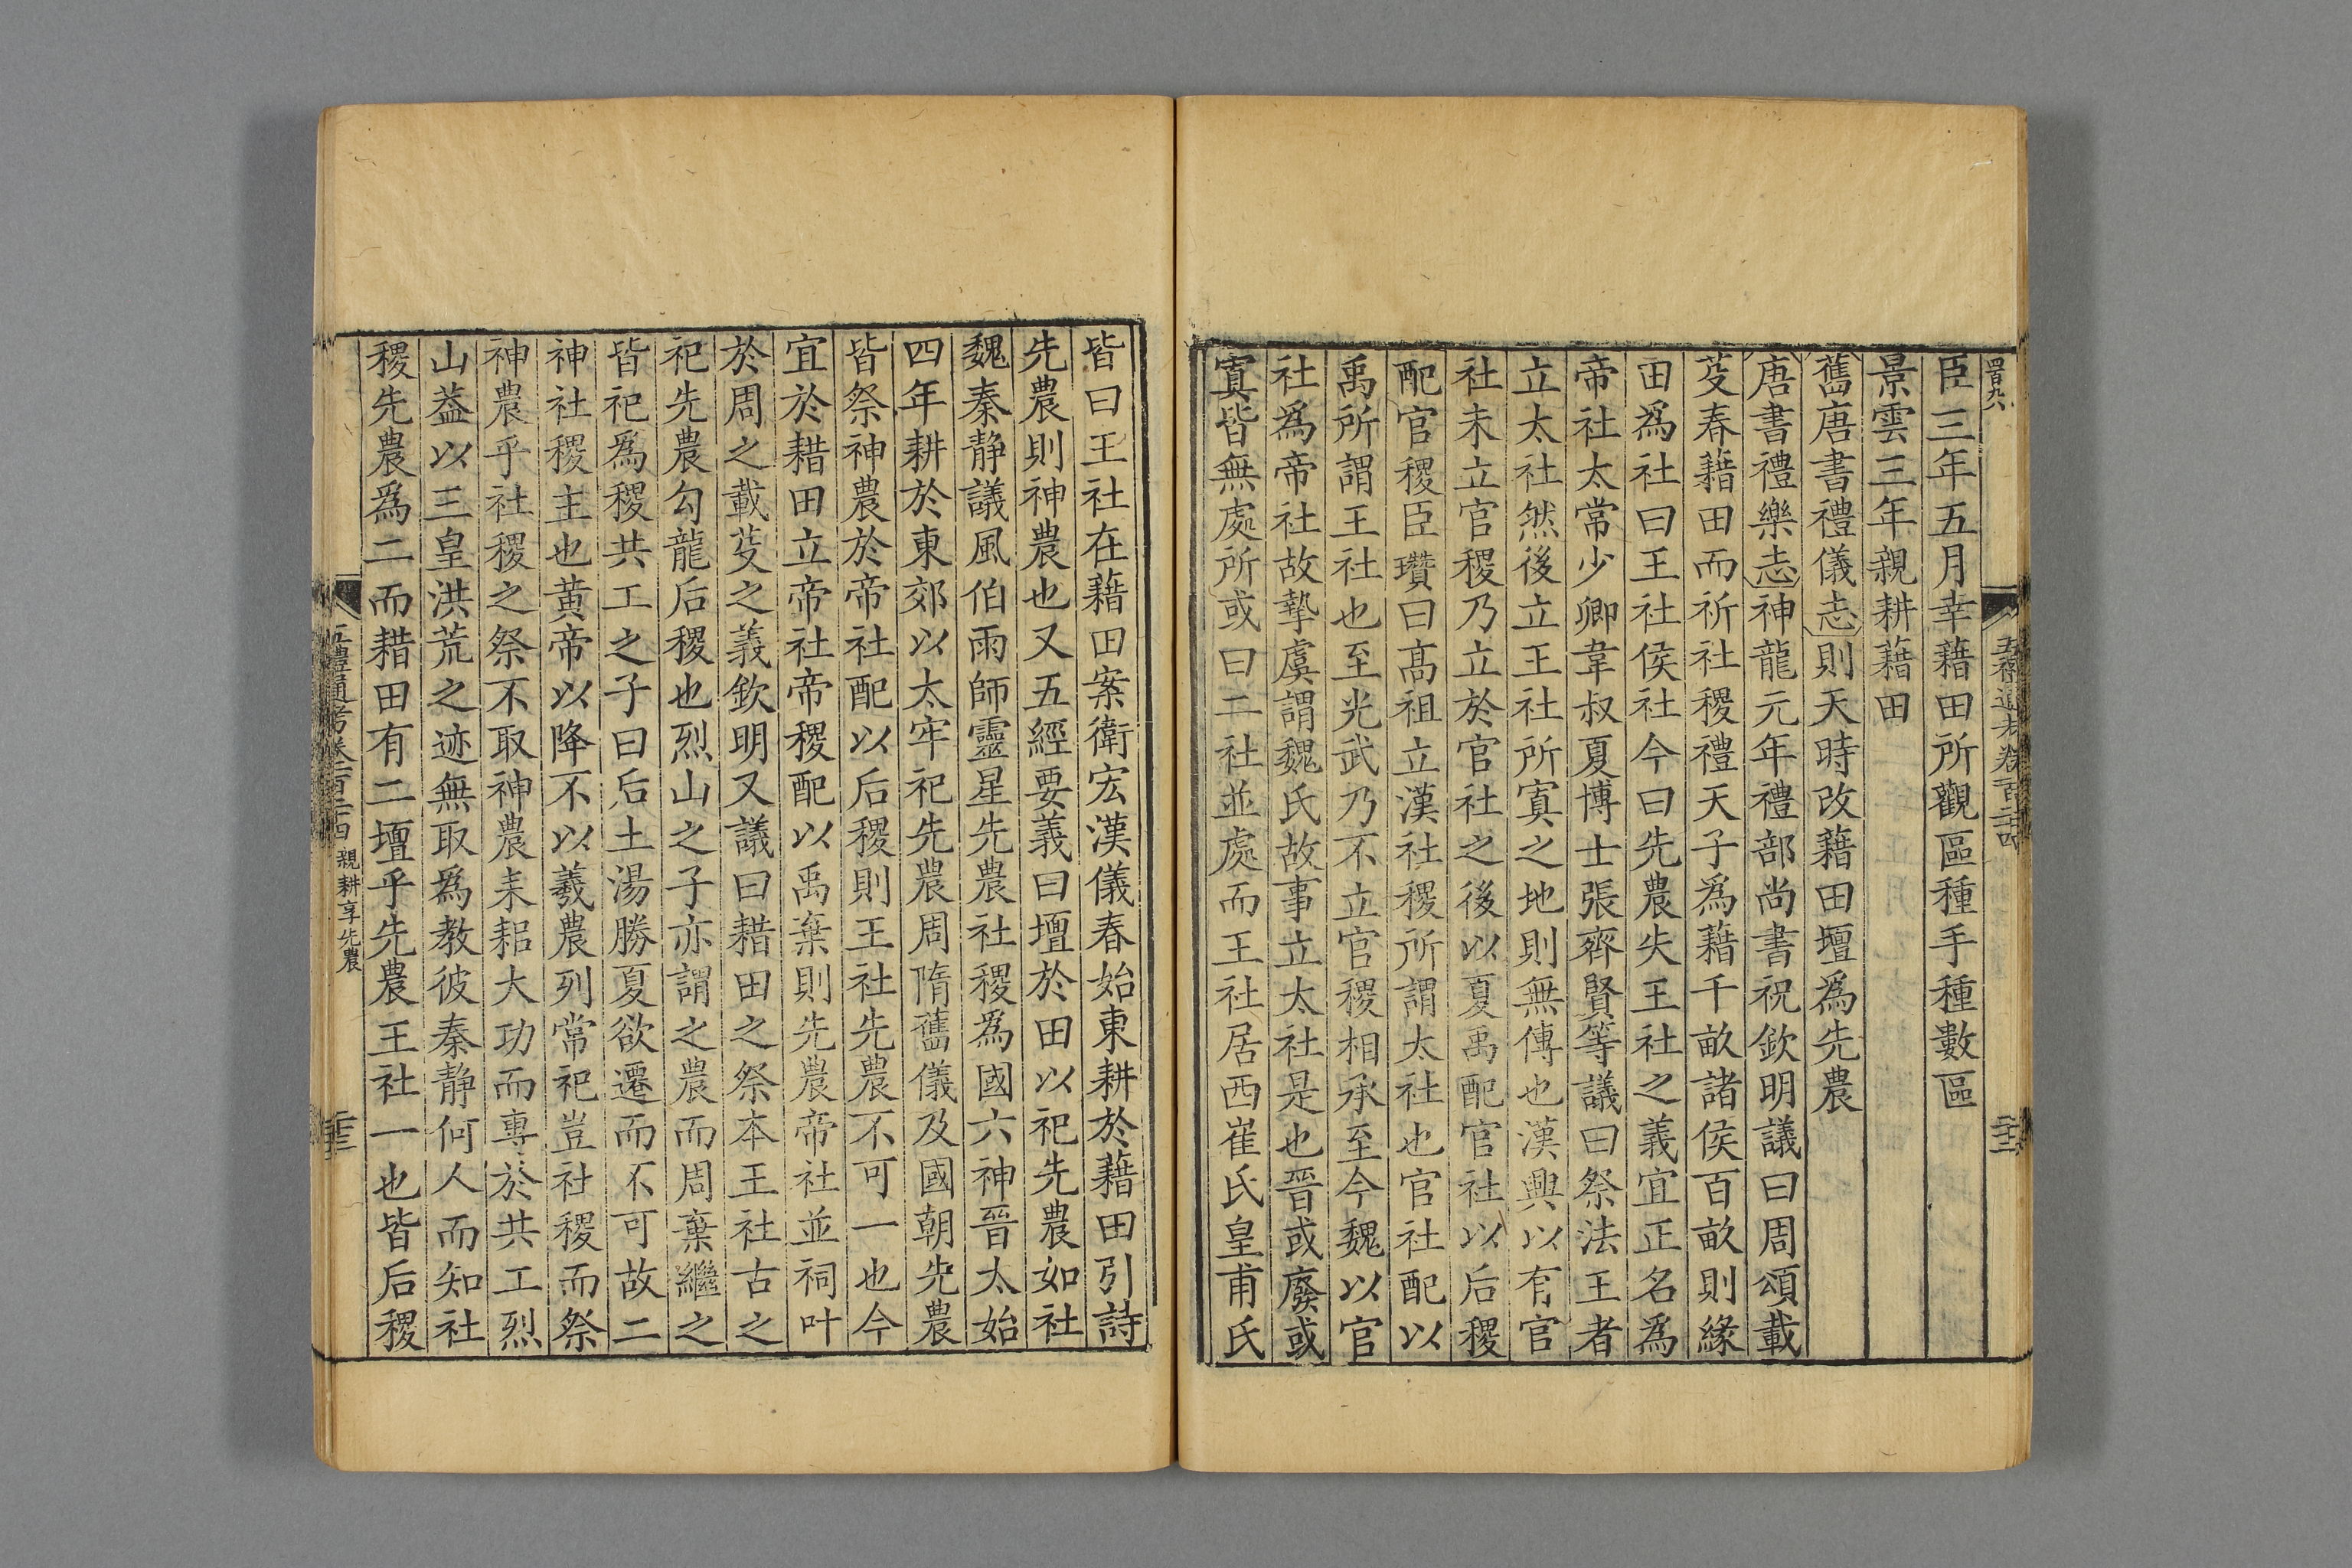 五禮通考卷一百二十四
臣三年五月幸藉田所觀區種手種數區
景雲三年親耕藉田
舊唐書禮儀志則天時改藉田壇爲先農
唐書禮樂志神龍元年禮部尚書祝欽明議曰周頌載
芟春藉田而祈社稷禮天子爲藉千畝諸侯百畝則緣
田爲社曰王社侯社今曰先農失王社之義宜正名爲
帝社太常少卿韋叔夏博士張齊賢等議曰祭法王者
立太社然後立王社所寘之地則無傳也漢興以有官
社未立官稷乃立於官社之後以夏禹配官社以后稷
配官稷臣瓚曰髙祖立漢社稷所謂太社也官社配以
禹所謂王社也至光武乃不立官稷相承至今魏以官
社爲帝社故摯虞謂魏氏故事立太社是也晉或廢或
寘皆無處所或曰二社並處而王社居西崔氏皇甫氏
皆曰王社在藉田案衛宏漢儀春始東耕於藉田引詩
先農則神農也又五經要義曰壇於田以祀先農如社
魏秦静議風伯雨師靈星先農社稷爲國六神晉太始
四年耕於東郊以太牢祀先農周隋舊儀及國朝先農
皆祭神農於帝社配以后稷則王社先農不可一也今
宜於耤田立帝社帝稷配以禹棄則先農帝社並祠叶
於周之載芟之義欽明又議曰耤田之祭本王社古之
祀先農勾龍后稷也烈山之子亦謂之農而周棄繼之
皆祀爲稷共工之子曰后土湯勝夏欲遷而不可故二
神社稷主也黄帝以降不以羲農列常祀豈社稷而祭
神農乎社稷之祭不取神農耒耜大功而專於共工烈
山葢以三皇洪荒之迹無取爲教彼秦静何人而知社
稷先農爲二而耤田有二壇乎先農王社一也皆后稷
五禮通考卷一百二十四 親耕享先農